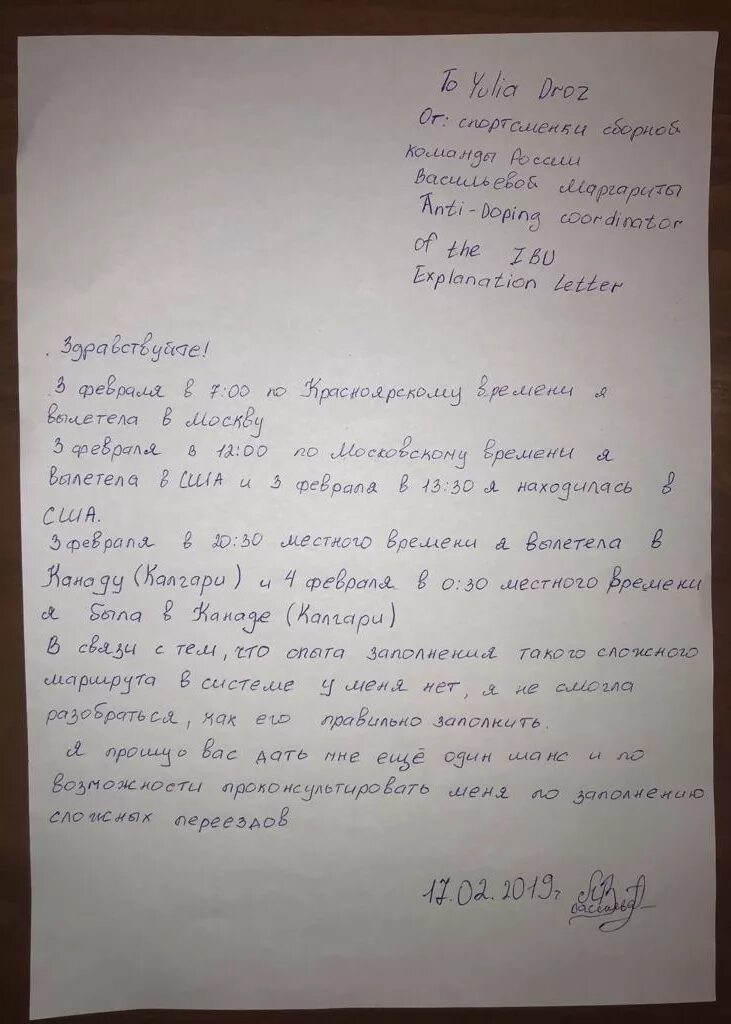 To Yulia Droz
От: спортсменки сборной
команды России
Васильевой Маргариты
Anti-Doping coordinator
of the IBU
Explanation Letter
Здравствуйте!
3 февраля в 7:00 по Красноярскому времени я
вылетела в Москву
3 февраля в 12:00 по Московскому времени я
вылетела в США и 3 февраля в 13:30 я находилась в
США.
3 февраля в 20:30 местного времени я вылетела в
Канаду (Калгари) и 4 февраля в 0:30 местного времени
я была в Канаде (Калгари)
В связи с тем, что опыта заполнения такого сложного
маршрута в системе у меня нет, я не смогла
разобраться, как его правильно заполнить.
Я прошую вас дать мне ещё один шанс и по
возможности проконсультировать меня по заполнению
сложных переездов
17.02.2019г